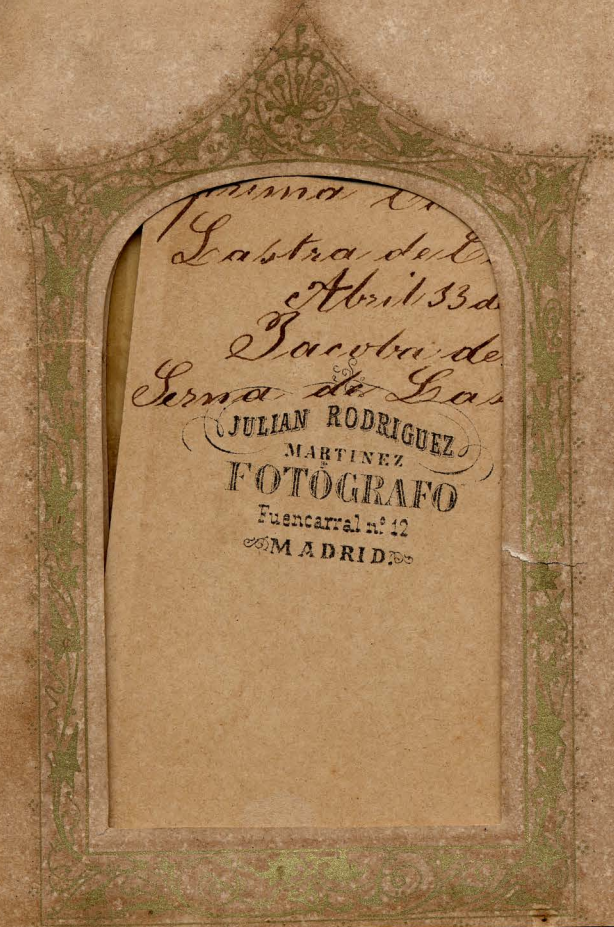 prima
Lastra de
Abril 33 de
Jacoba de
Serna de Las
JULIAN RODRIGUEZ
MARTINEZ
FOTÓGRAFO
Fuencarral nº 12
MADRID.